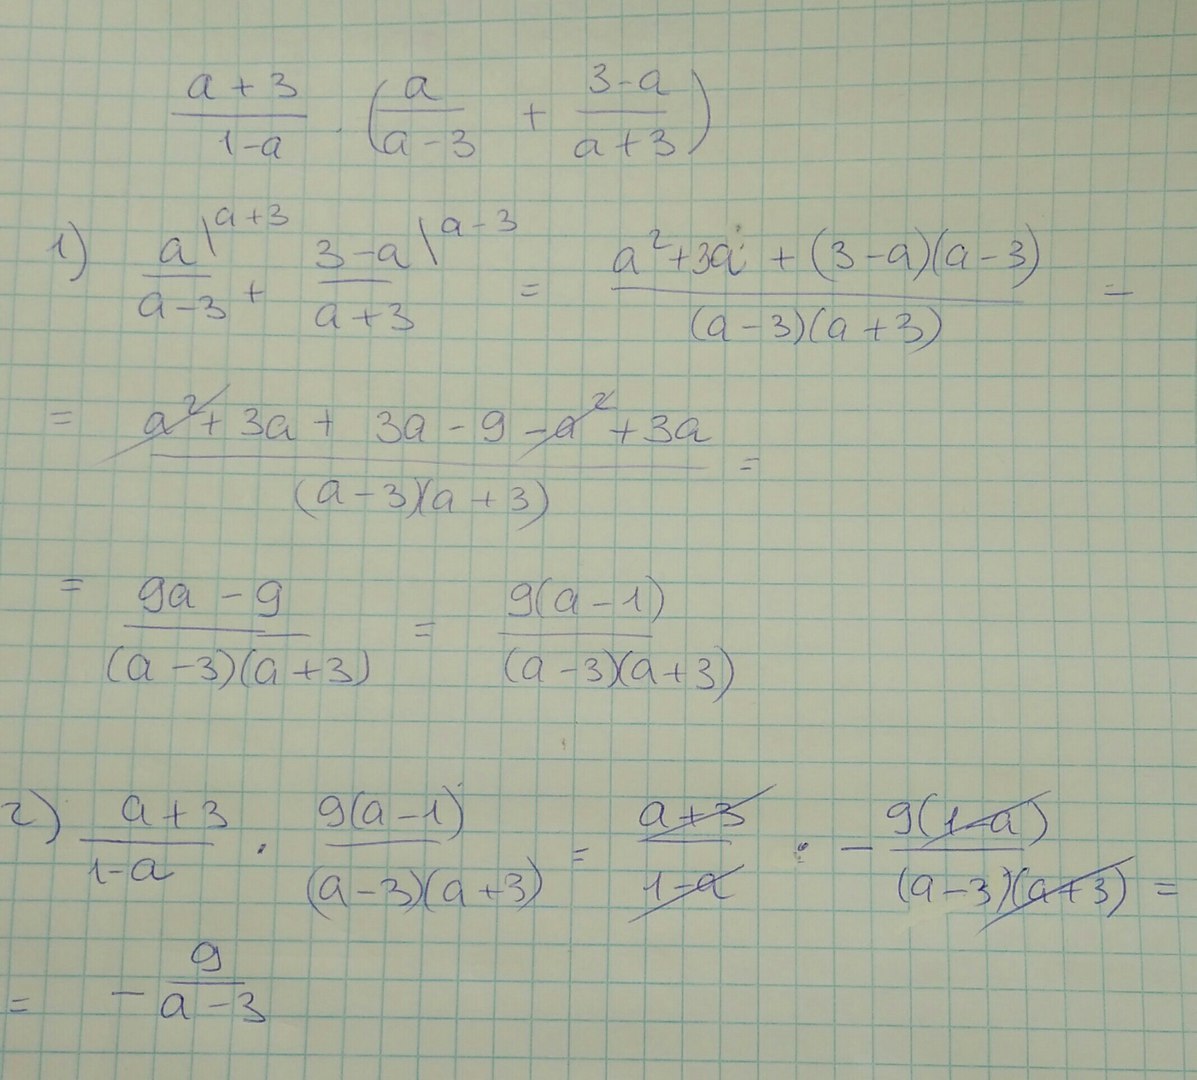 a + 3 / 1 - a · (a / a - 3 + 3 - a / a + 3)
1) a \ a + 3 / a - 3 + 3 - a \ a - 3 / a + 3 = a² + 3a + (3 - a)(a - 3) / (a - 3)(a + 3) =
= a² + 3a + 3a - 9 - a² + 3a / (a - 3)(a + 3) =
= 9a - 9 / (a - 3)(a + 3) = 9(a - 1) / (a - 3)(a + 3)
2) a + 3 / 1 - a · 9(a - 1) / (a - 3)(a + 3) = a + 3 / 1 - a · - 9(1 - a) / (a - 3)(a + 3) =
= - 9 / a - 3